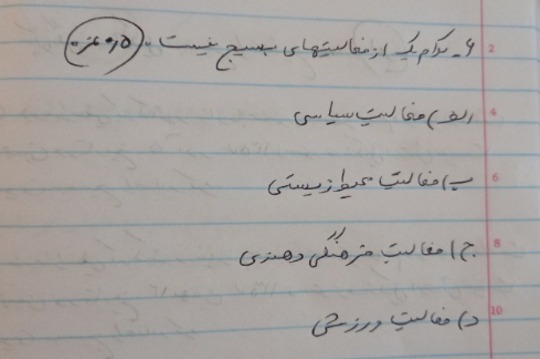 ۶- کدام یک از فعالیتهای بسیج نیست. (۰/۵ نمره)
الف) فعالیت سیاسی
ب) فعالیت محیط زیستی
ج) فعالیت فرهنگی و هنری
د) فعالیت ورزشی
2
4
6
8
10